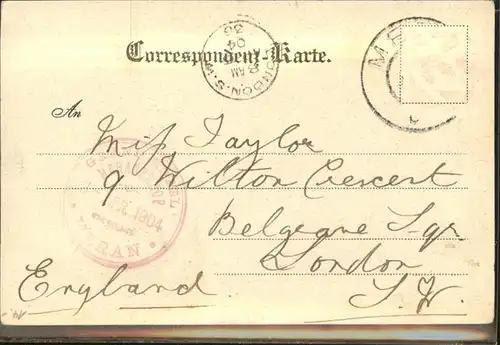 Correspondenz-Karte.
LONDON.S.W.
AM
04
26
An
Miss Taylor
9 Wilton Crescent
Belgrave Sqr.
London
England S.W.
1904